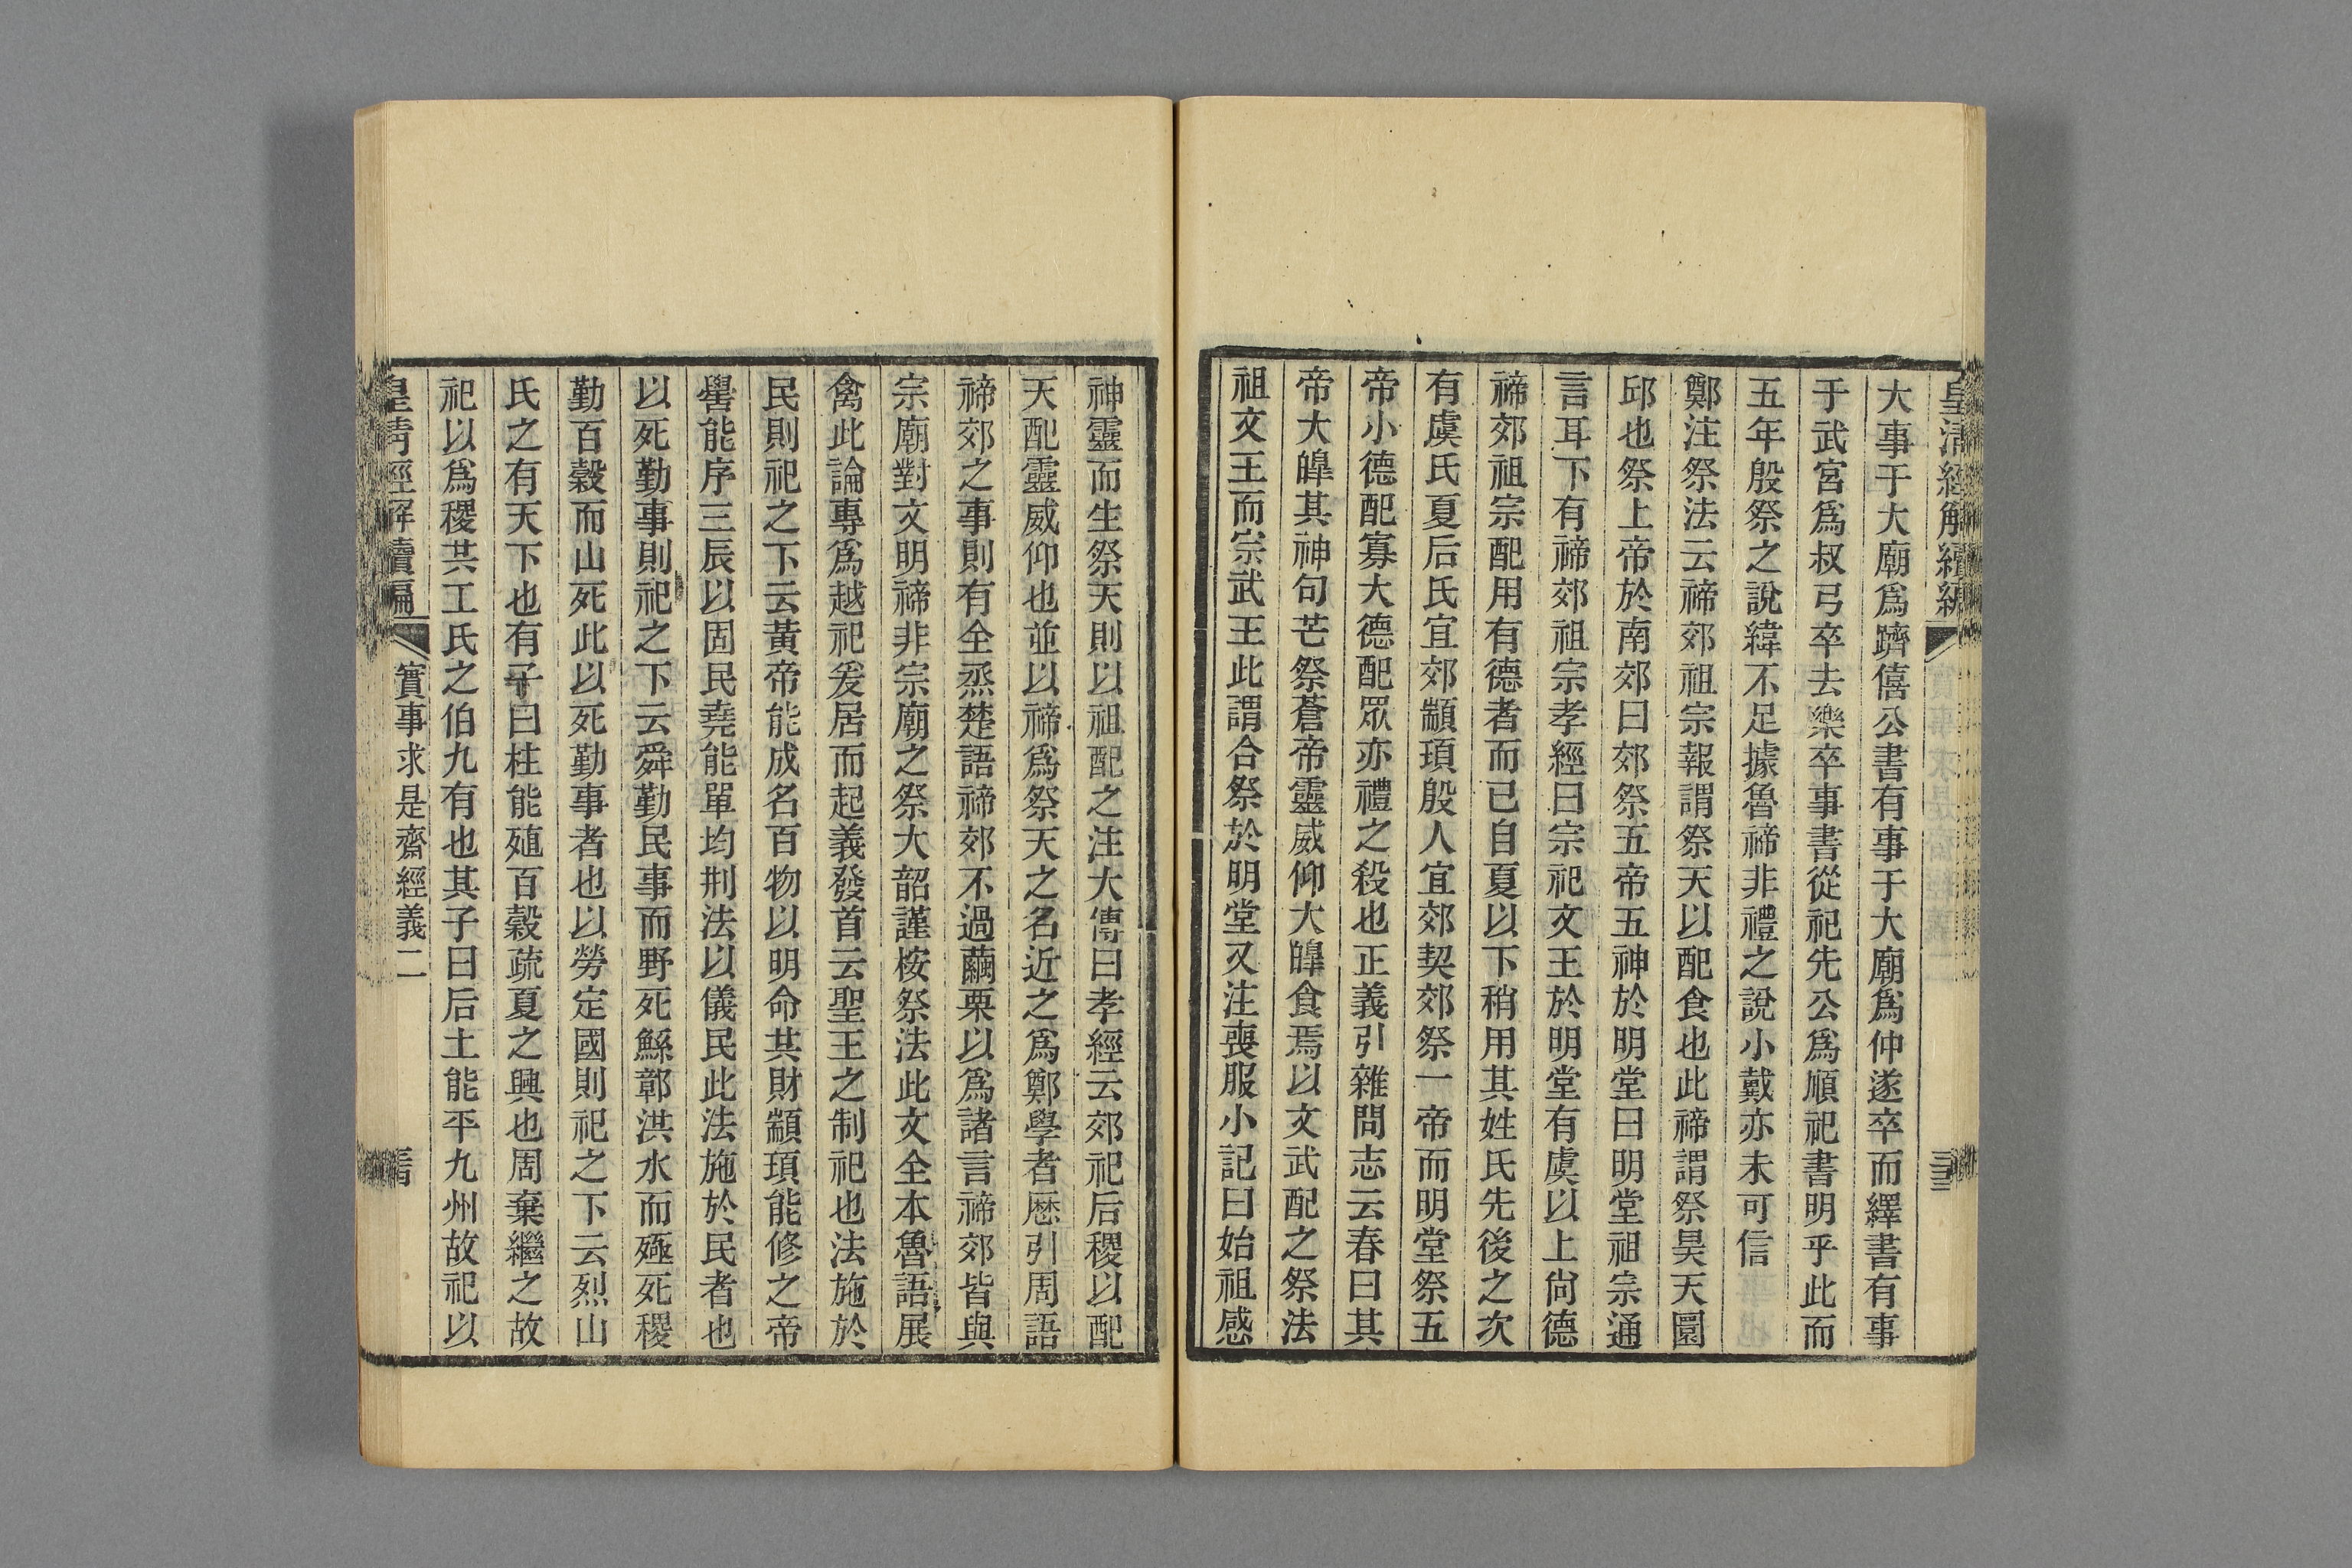 皇清經解續編
大事于大廟爲躋僖公書有事于大廟爲仲遂卒而繹書有事
于武宮爲叔弓卒去樂卒事書從祀先公爲順祀書明乎此而
五年殷祭之說緯不足據魯禘非禮之說小戴亦未可信
鄭注祭法云禘郊祖宗報謂祭天以配食也此禘謂祭昊天圜
邱也祭上帝於南郊曰郊祭五帝五神於明堂曰明堂祖宗通
言耳下有禘郊祖宗孝經曰宗祀文王於明堂有虞以上尙德
禘郊祖宗配用有德者而已自夏以下稍用其姓氏先後之次
有虞氏夏后氏宜郊顓頊殷人宜郊契郊祭一帝而明堂祭五
帝小德配寡大德配眾亦禮之殺也正義引雜問志云春曰其
帝大皥其神句芒祭蒼帝靈威仰大皥食焉以文武配之祭法
祖文王而宗武王此謂合祭於明堂又注喪服小記曰始祖感
神靈而生祭天則以祖配之注大傳曰孝經云郊祀后稷以配
天配靈威仰也並以禘爲祭天之名近之爲鄭學者歷引周語
禘郊之事則有全烝楚語禘郊不過繭栗以爲諸言禘郊皆與
宗廟對文明禘非宗廟之祭大韶謹桉祭法此文全本魯語展
禽此論專爲越祀爰居而起義發首云聖王之制祀也法施於
民則祀之下云黃帝能成名百物以明命共財顓頊能修之帝
嚳能序三辰以固民堯能單均刑法以儀民此法施於民者也
以死勤事則祀之下云舜勤民事而野死鯀鄣洪水而殛死稷
勤百穀而山死此以死勤事者也以勞定國則祀之下云烈山
氏之有天下也有子曰柱能殖百穀疏夏之興也周棄繼之故
祀以爲稷共工氏之伯九有也其子曰后土能平九州故祀以
皇淸經解續編
實事求是齋經義二